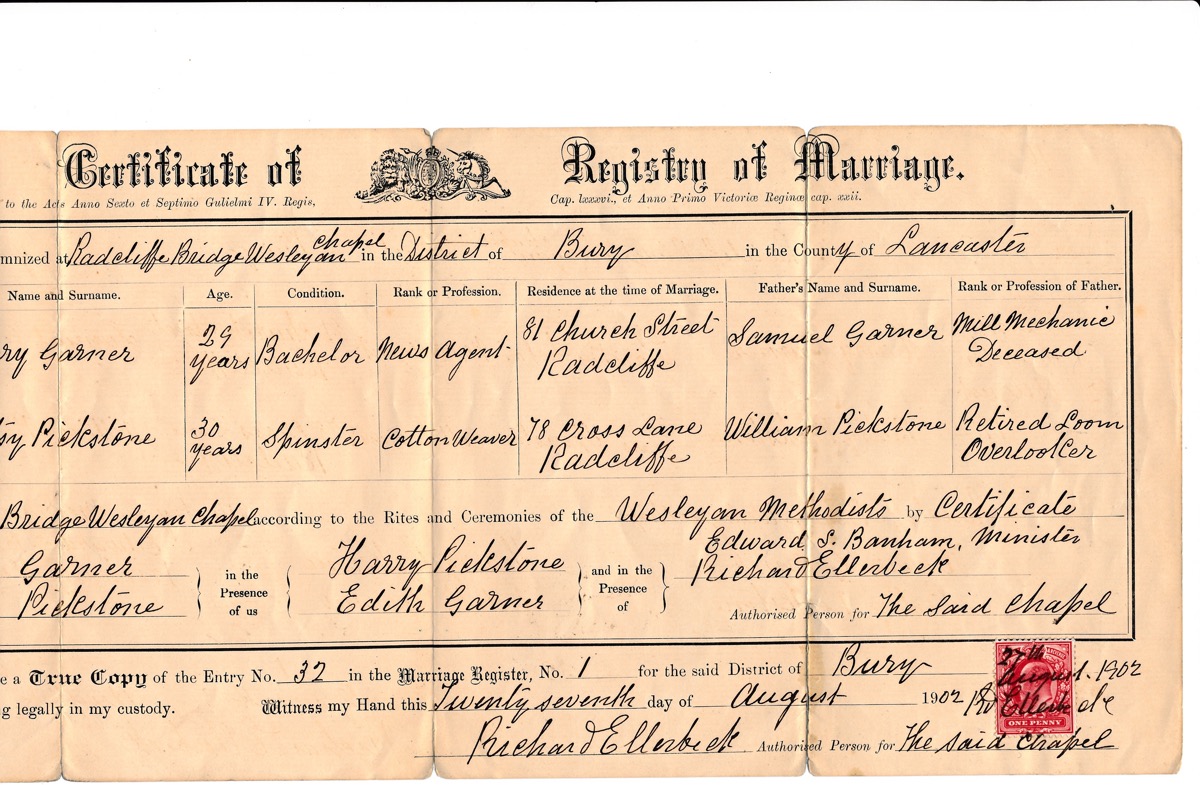 Certificate of Registry of Marriage.
to the Acts Anno Sexto et Septimo Gulielmi IV. Regis, Cap. lxxxvi., et Anno Primo Victoriæ Reginæ cap. xxii.
mnized at Radcliffe Bridge Wesleyan Chapel in the District of Bury in the County of Lancaster
Name and Surname. Age. Condition. Rank or Profession. Residence at the time of Marriage. Father's Name and Surname. Rank or Profession of Father.
ry Garner 29 years Bachelor News Agent 81 Church Street Radcliffe Samuel Garner Mill Mechanic Deceased
sy Pickstone 30 years Spinster Cotton Weaver 78 Cross Lane Radcliffe William Pickstone Retired Loom Overlooker
Bridge Wesleyan Chapel according to the Rites and Ceremonies of the Wesleyan Methodists by Certificate
Edward S. Banham, Minister
Garner in the Harry Pickstone and in the Richard Ellerbeck
Presence Presence
Pickstone of us Edith Garner of Authorised Person for The said Chapel
e a True Copy of the Entry No. 32 in the Marriage Register, No. 1 for the said District of Bury
g legally in my custody. Witness my Hand this Twenty seventh day of August 1902
27th August. 1902
Rd Ellerbeck
ONE PENNY
Richard Ellerbeck Authorised Person for The said Chapel